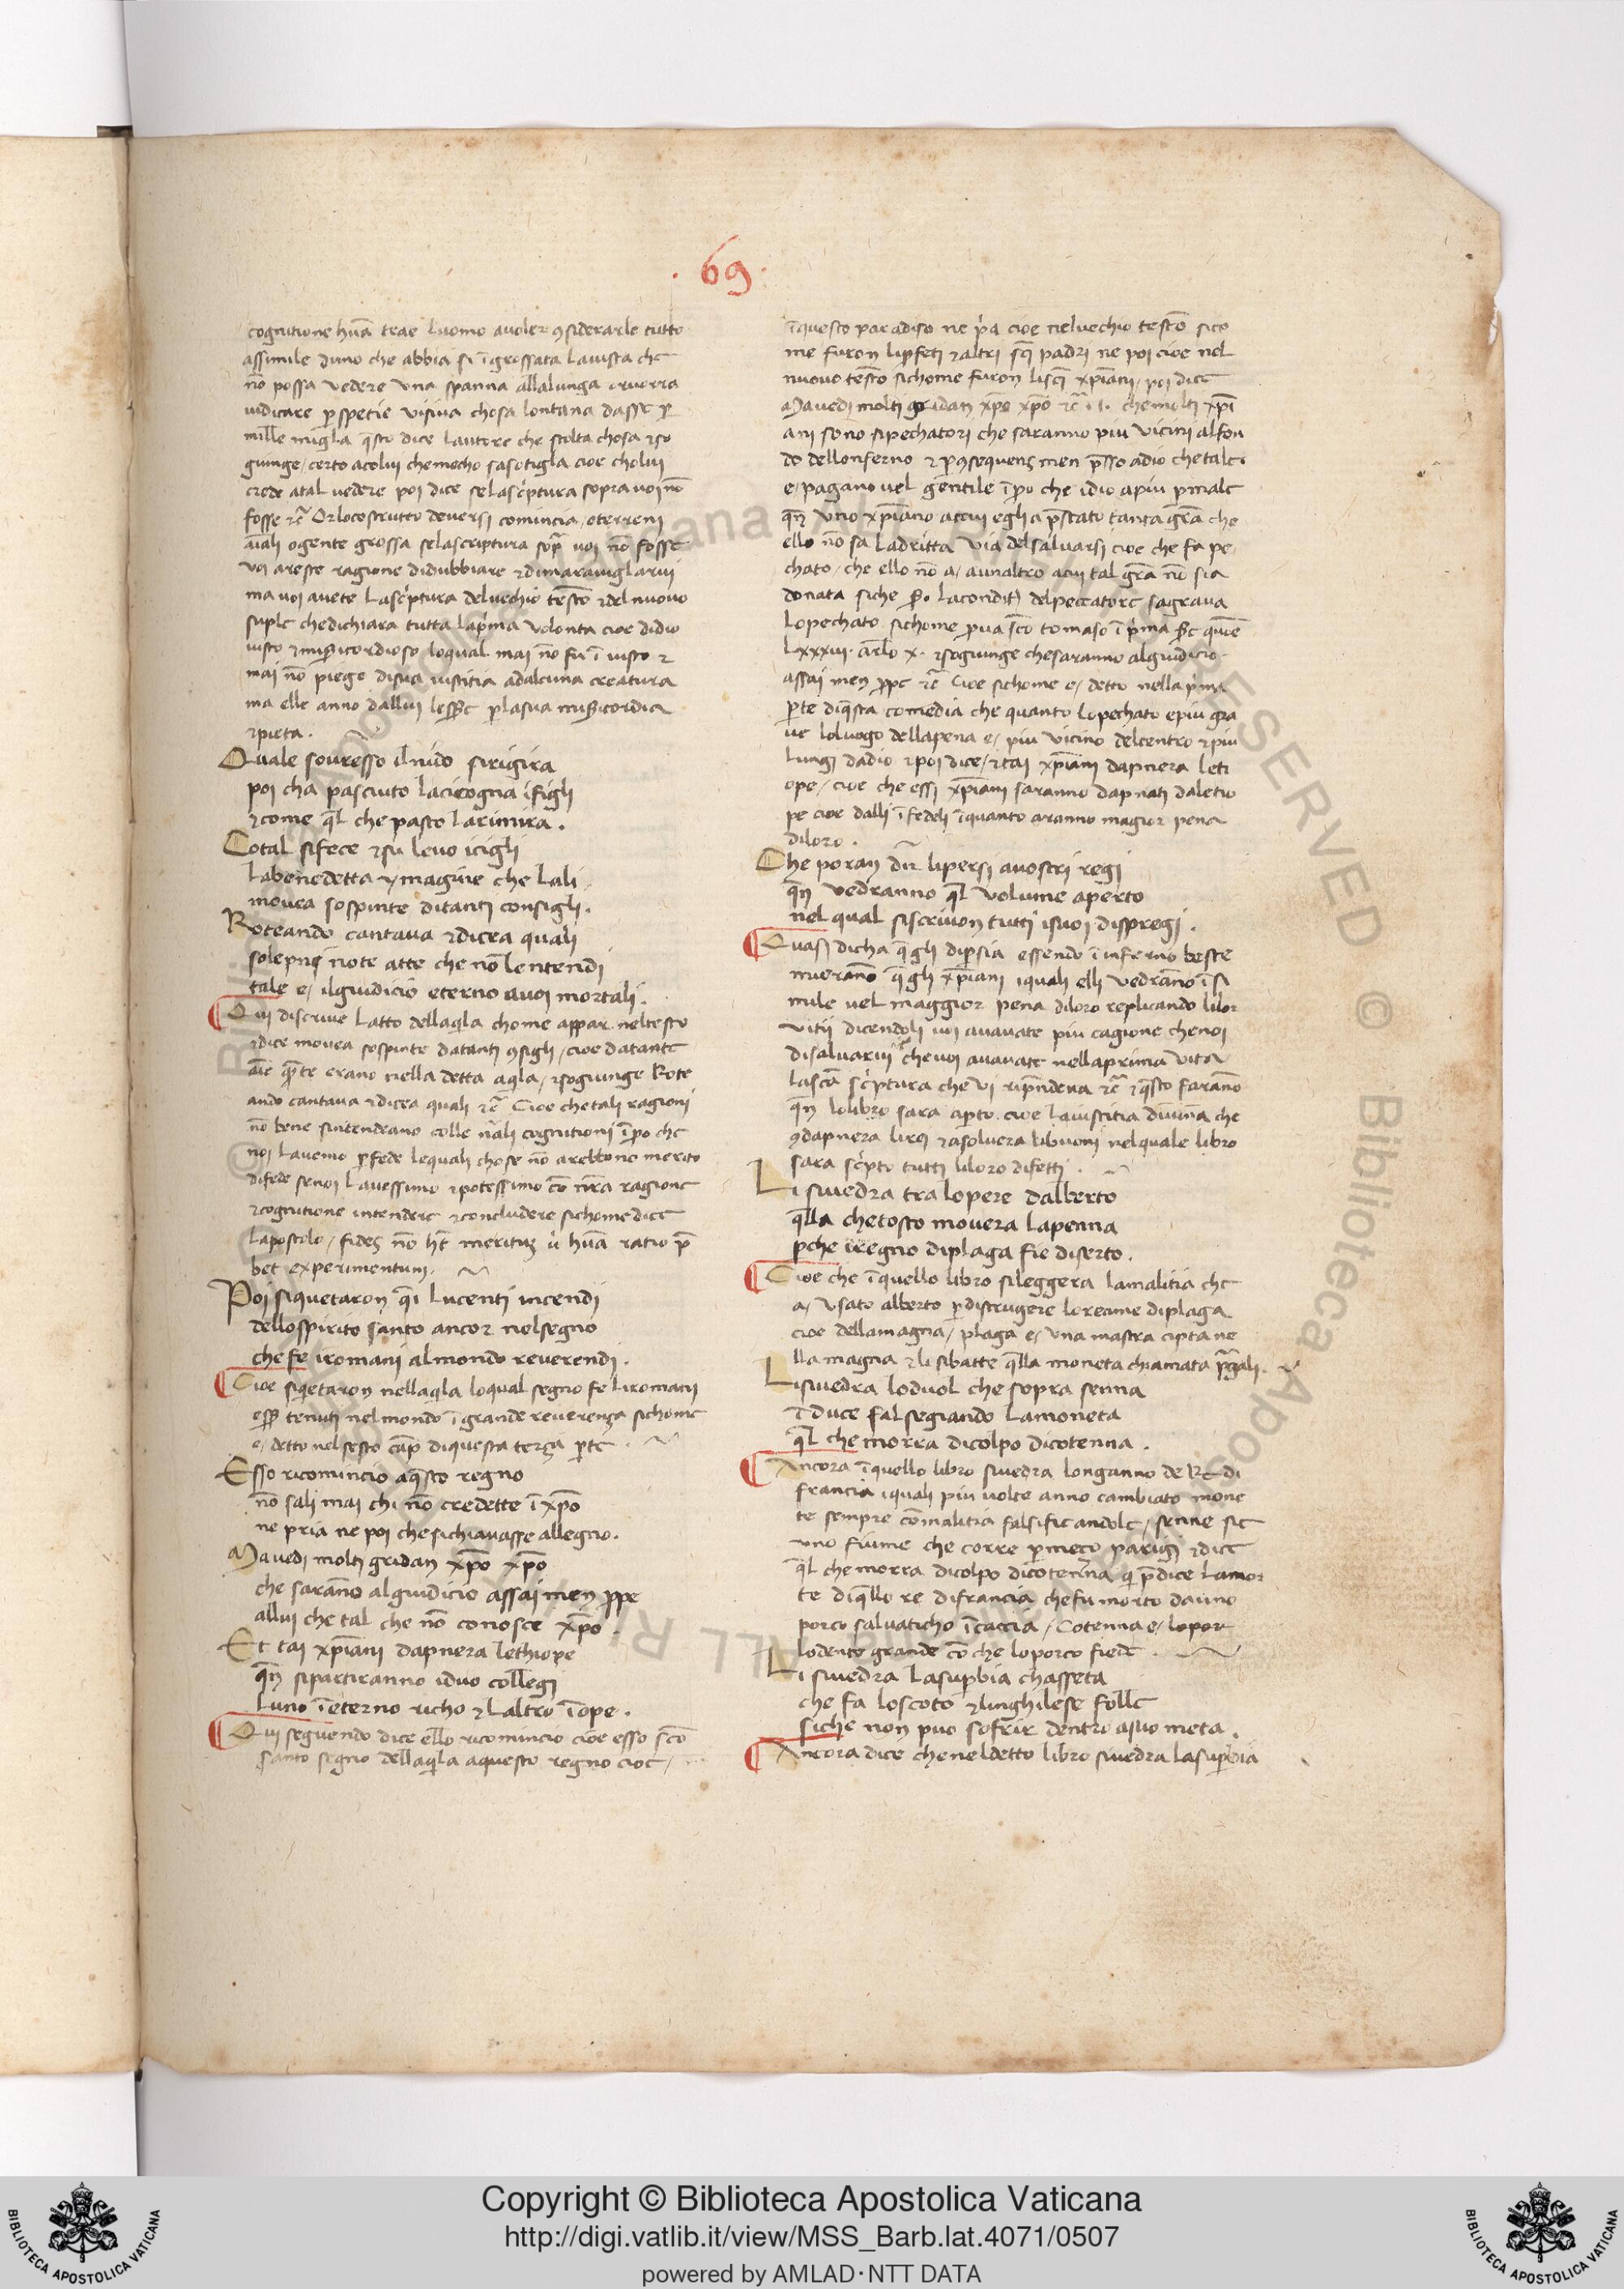 . 69 .
cognitione huā trae luomo avoler ꝯsiderarle tutto
assimile duno che abbia si īgrossata lauista che
nō possa vedere una spanna allalunga
iudicare ꝑ spetie visiua chosa lontana dasse ꝑ
mille migla q̄sto dice lautore che stolta chosa
giunge / certo acolui chemecho sasotigla cioe cholui
crede atal vedere poi dice selascͥptura sopra voi nō
fosse ⁊c̄ Orlocostrutto deversi comincia / oterreni
aīali ogente grossa selascriptura sop̄ voi nō fosse
voi areste ragione didubbiare ⁊dimarauiglarui
ma voi auete lascͥptura deluechio testō ⁊delnuovo
suplc chedichiara tutta lapͥma volonta cioe didio
iusto ⁊miẜicordioso loqual mai nō fu ī iusto ⁊
mai nō piego disua iustitia adalcuna creatura
ma elle anno dallui lesser ꝑ lasua miẜicordia
⁊pieta .
Quale sovresso il nido sirigira
poi cha pasciuto lacicogna ifigli
⁊come q̄l che pasto larimira .
Cotal sifece ⁊su levo icigli
labenedetta ymagine che lali
movea sospinte ditanti consigli .
Roteando cantava ⁊dicea quali
solepni note atte che nō lentendi
tale e / ilgiudicio eterno avoi mortali .
Qui discrive latto dellaq̄la chome appar neltesto
⁊dice movea sospinte datanti ꝯsigli / cioe datante
aīe erano nella detta aq̄la / ⁊sogiunge Rote
ando cantaua ⁊dicea quali ⁊c̄ Cioe chetali ragioni
nō bene sintendeano colle nr̄ali cognitioni īꝑo che
noi lauemo ꝑ fede lequali chose nō arebbono merito
difede senoi lauessimo ⁊potessimo cō nr̄a ragione
⁊cognitione intendere ⁊concludere sichomedice
lapostolo / fides nō h̄t meritū huā ratio p̄
bet experimentum .
Poi siquetaron q̄i lucenti incendi
dellospirito santo ancor nelsegno
che fe iromani almondo reverendi .
Cioe siquetaron nellaq̄la loqual segno fe liromani
tenuti nelmondo ī grande reverenza sichome
e / detto nel sesto cap̄ diquesta terza ꝑte .
Esso ricomincio aq̄sto regno
nō sali mai chi nō credette ī xp̄o
ne pria ne poi chesichiavasse allegno .
Mavedi molti gridan xp̄o xp̄o
che sarāno algiudicio assai men ꝓpe
allui che tal che nō conosce xp̄o .
Et tai xp̄iani dapnera lethiope
q̄n sipartiranno iduo collegi
luno ī eterno richo ⁊laltro īope .
Qui seguendo dice ello ricomincio cioe esso sc̄o
santo segno dellaq̄la aquesto regno cioe /
īquesto paradiso ne pͥa cioe neluechio testō sico
me furon liꝓfeti ⁊altri sc̄i padri ne poi cioe nel
nuovo testō sichome furon lisc̄i xp̄iani / poi dice
Mavedi molti gridan xp̄o xp̄o ⁊c̄ chemolti xp̄i
ani sono sipechatori che saranno piu vicini alfon
do dellonferno ⁊ꝑ ꝯsequens men p̄sso adio chetale
e / pagano vel gentile īꝑo che idio apiu ꝑ male
q̄n uno xp̄iano acui egli a p̄stato tanta grā che
ello nō sa ladritta via delsalvarsi cioe che fa pe
chato / che ello nō a / aunaltro acui tal grā nō sia
donata siche ꝑ laconditō delpeccatore sagrava
lopechato sichome ꝓva sc̄o tomaso ī pͥma
lxxxvi . arlo x . ⁊sogiunge chesaranno algiudicio
assai men ꝓpe ⁊c̄ Cioe sichome e / detto nella pͥma
ꝑte diq̄sta comedia che quanto lopechato epiu gra
ve loluogo dellapena e / piu vicino delcentro ⁊piu
lungi dadio ⁊poi dice / ⁊tai xp̄iani dapnera leti
ope / cioe che essi xp̄iani saranno dapnati daletio
pe cioe dalli īfedeli īquanto aranno magior pena
diloro .
Che poran dir lipersi avostri regi
q̄n vedranno q̄l volume aperto
nel qual siscrivon tutti isuoi dispregi .
Quasi dicha q̄gli diꝑsia essendo ī inferno beste
mierāno q̄gli xp̄iani iquali elli vedrāno ī si
mile vel maggior pena diloro replicando lilor
vitii dicendoli voi avavate piu cagione chenoi
disaluarui chevoi avavate nellaprima vita
lasc̄a scͥptura che vi rip̄ndeva ⁊c̄ ⁊q̄sto farāno
q̄n lolibro sara aꝑto . cioe laiustitia divina che
ꝯdapnera lirei ⁊asoluera libuoni nelquale libro
sara scͥpto tutti liloro difetti .
Li sivedra tralopere dalberto
q̄lla chetosto movera lapenna
ꝑche ilregno dipraga fie diserto .
Cioe che īquello libro sileggera lamalitia che
a / usato alberto ꝑ distrugere loreame diplaga
cioe dellamagna / plaga e / una mastra cipta ne
lla magna ⁊li sibatte q̄lla moneta chiamata
Lisivedra loduol che sopra senna
Iduce falsegiando lamoneta
q̄l che morra dicolpo dicotenna .
Ancora īquello libro sivedra longanno de Re di
francia iquali piu volte anno cambiato mone
te sempre cōmalitia falsificandole / senne sie
uno fiume che corre ꝑ meço parigi ⁊dice
q̄l che morra dicolpo dicotenna q̄ p̄dice lamor
te diq̄llo re difrancia chefu morto dauno
porco saluaticho īcaccia / Cotenna e / lopor
lodente grande cō che loporco fiede .
Li sivedra lasuꝑbia chasseta
che fa loscoto ⁊linghilese folle
siche non puo sofrir dentro asuo meta .
Ancora dice cheneldetto libro sivedra lasuꝑbia
Copyright © Biblioteca Apostolica Vaticana
http://digi.vatlib.it/view/MSS_Barb.lat.4071/0507
powered by AMLAD·NTT DATA
BIBLIOTECA APOSTOLICA VATICANA
BIBLIOTECA APOSTOLICA VATICANA